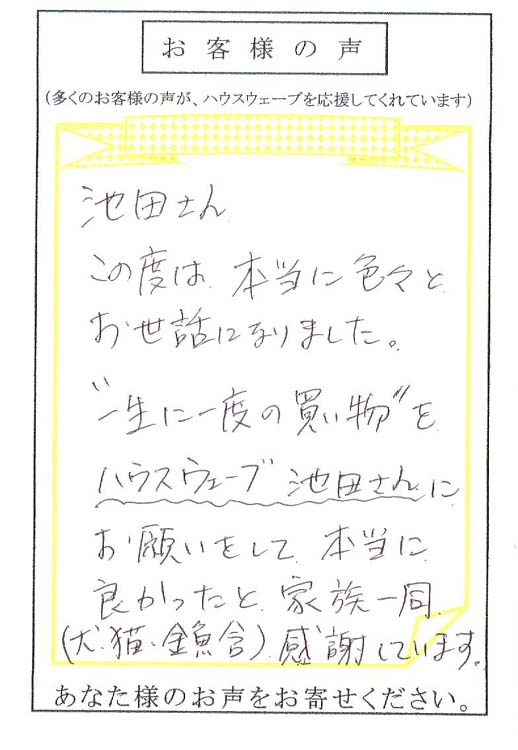 お客様の声
(多くのお客様の声が、ハウスウェーブを応援してくれています)
池田さん
この度は、本当に色々と
お世話になりました。
"一生に一度の買い物"を
ハウスウェーブ 池田さんに
お願いをして、本当に
良かったと、家族一同、
(犬、猫、金魚含)感謝しています。
あなた様のお声をお寄せください。